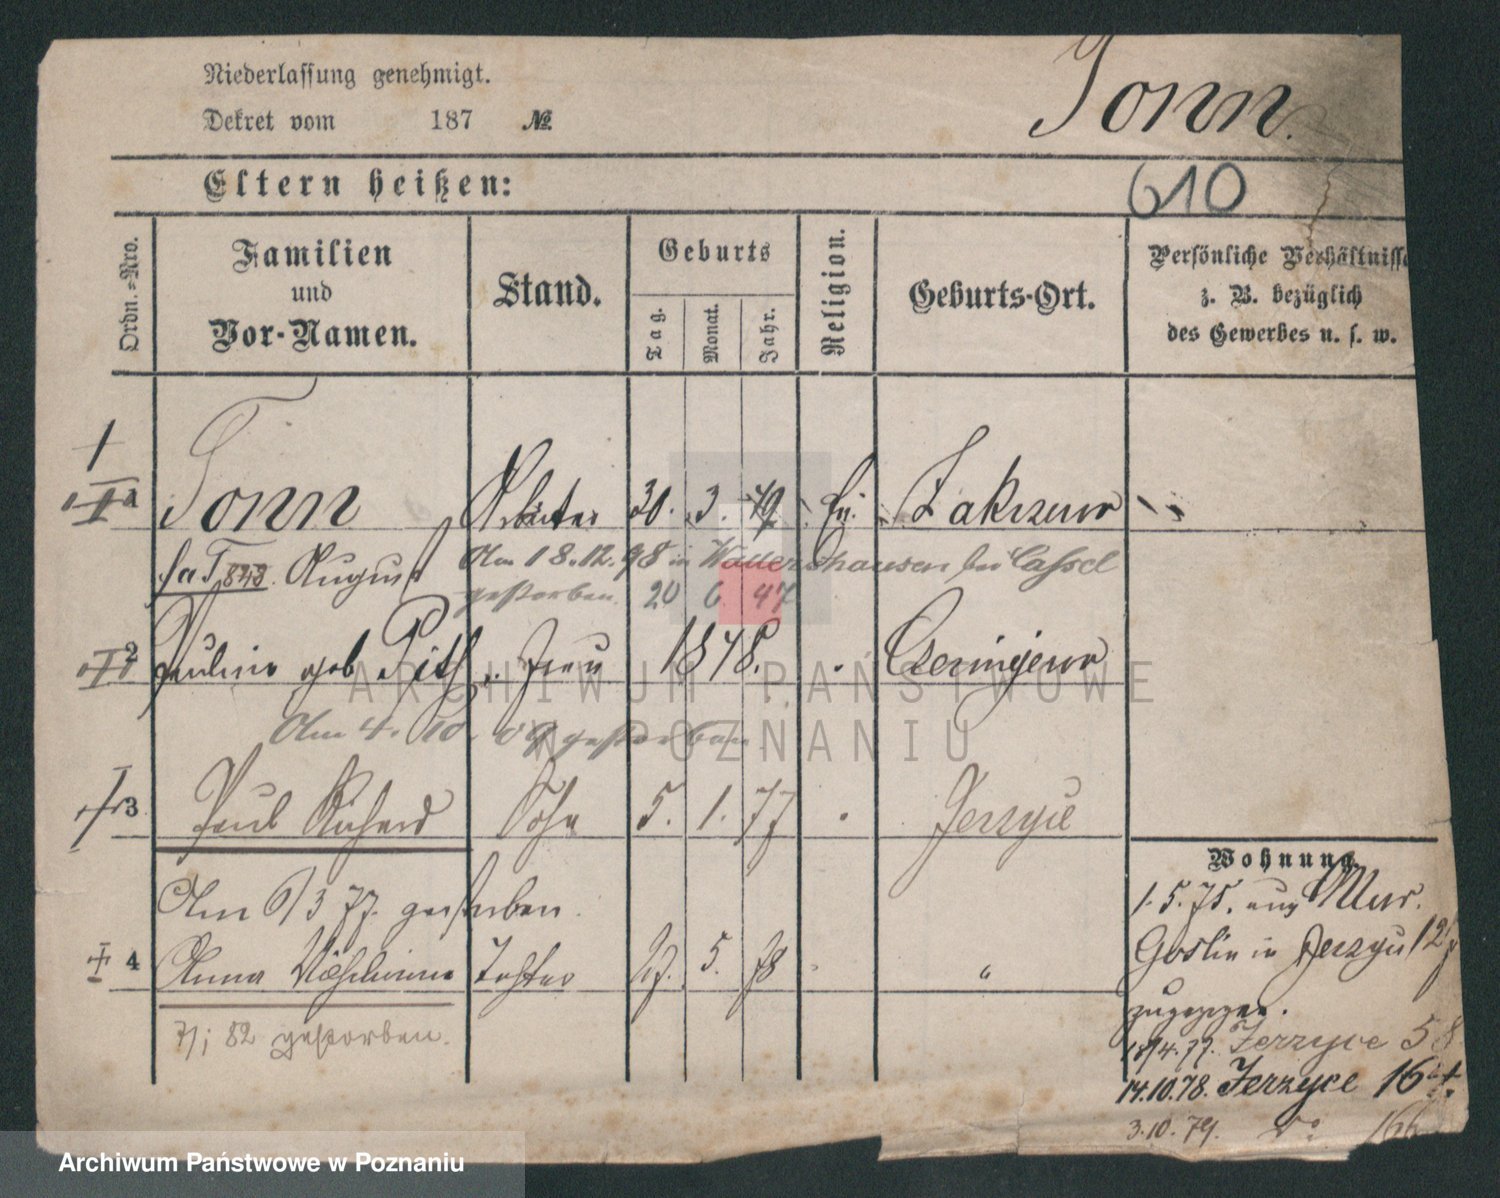 Niederlassung genehmigt.
Tonn.
Dekret vom 187 №
Eltern heißen:
610
Ordn.-Nro.
Familien
und
Vor-Namen.
Stand.
Geburts
Tag.
Monat.
Jahr.
Religion.
Geburts-Ort.
Persönliche Verhältnisse
z. B. bezüglich
des Gewerbes u. s. w.
1 Tonn Arbeiter 30. 3. 49 Ev. Zakrzewo
August Am 18.12.98 in bei Cassel
gestorben. 20 6 47
2 Pauline geb. Frau 1848.
Am 4. 10. 09 gestorben
3 Paul Richard Sohn 5. 1. 77 " Jerzyce
Am 6/3 77. gestorben.
4 Anna Tochter 5. 78 "
82 gestorben.
Wohnung.
1.5.75. aus Mur.
Goslin in Jerzyce 12
zugezogen.
4.77. Jerzyce 58
14.10.78. Jerzyce 16
3.10.79. do 166
ARCHIWUM PAŃSTWOWE
W POZNANIU
Archiwum Państwowe w Poznaniu